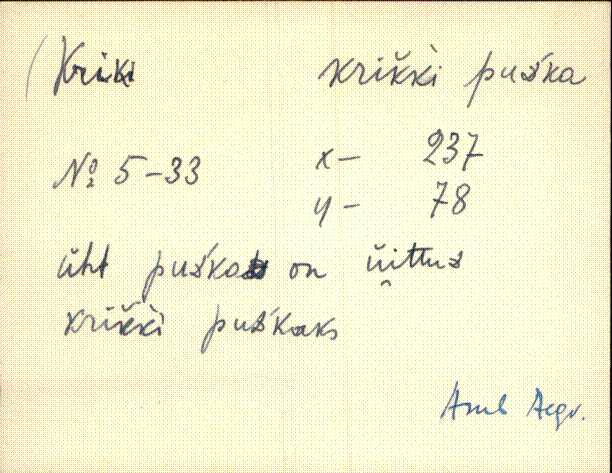 (Kriki krikki puśka
№ 5-33 x- 237
y- 78
üht puśka on üittus
krikki puśkaks
Amb Aegv.